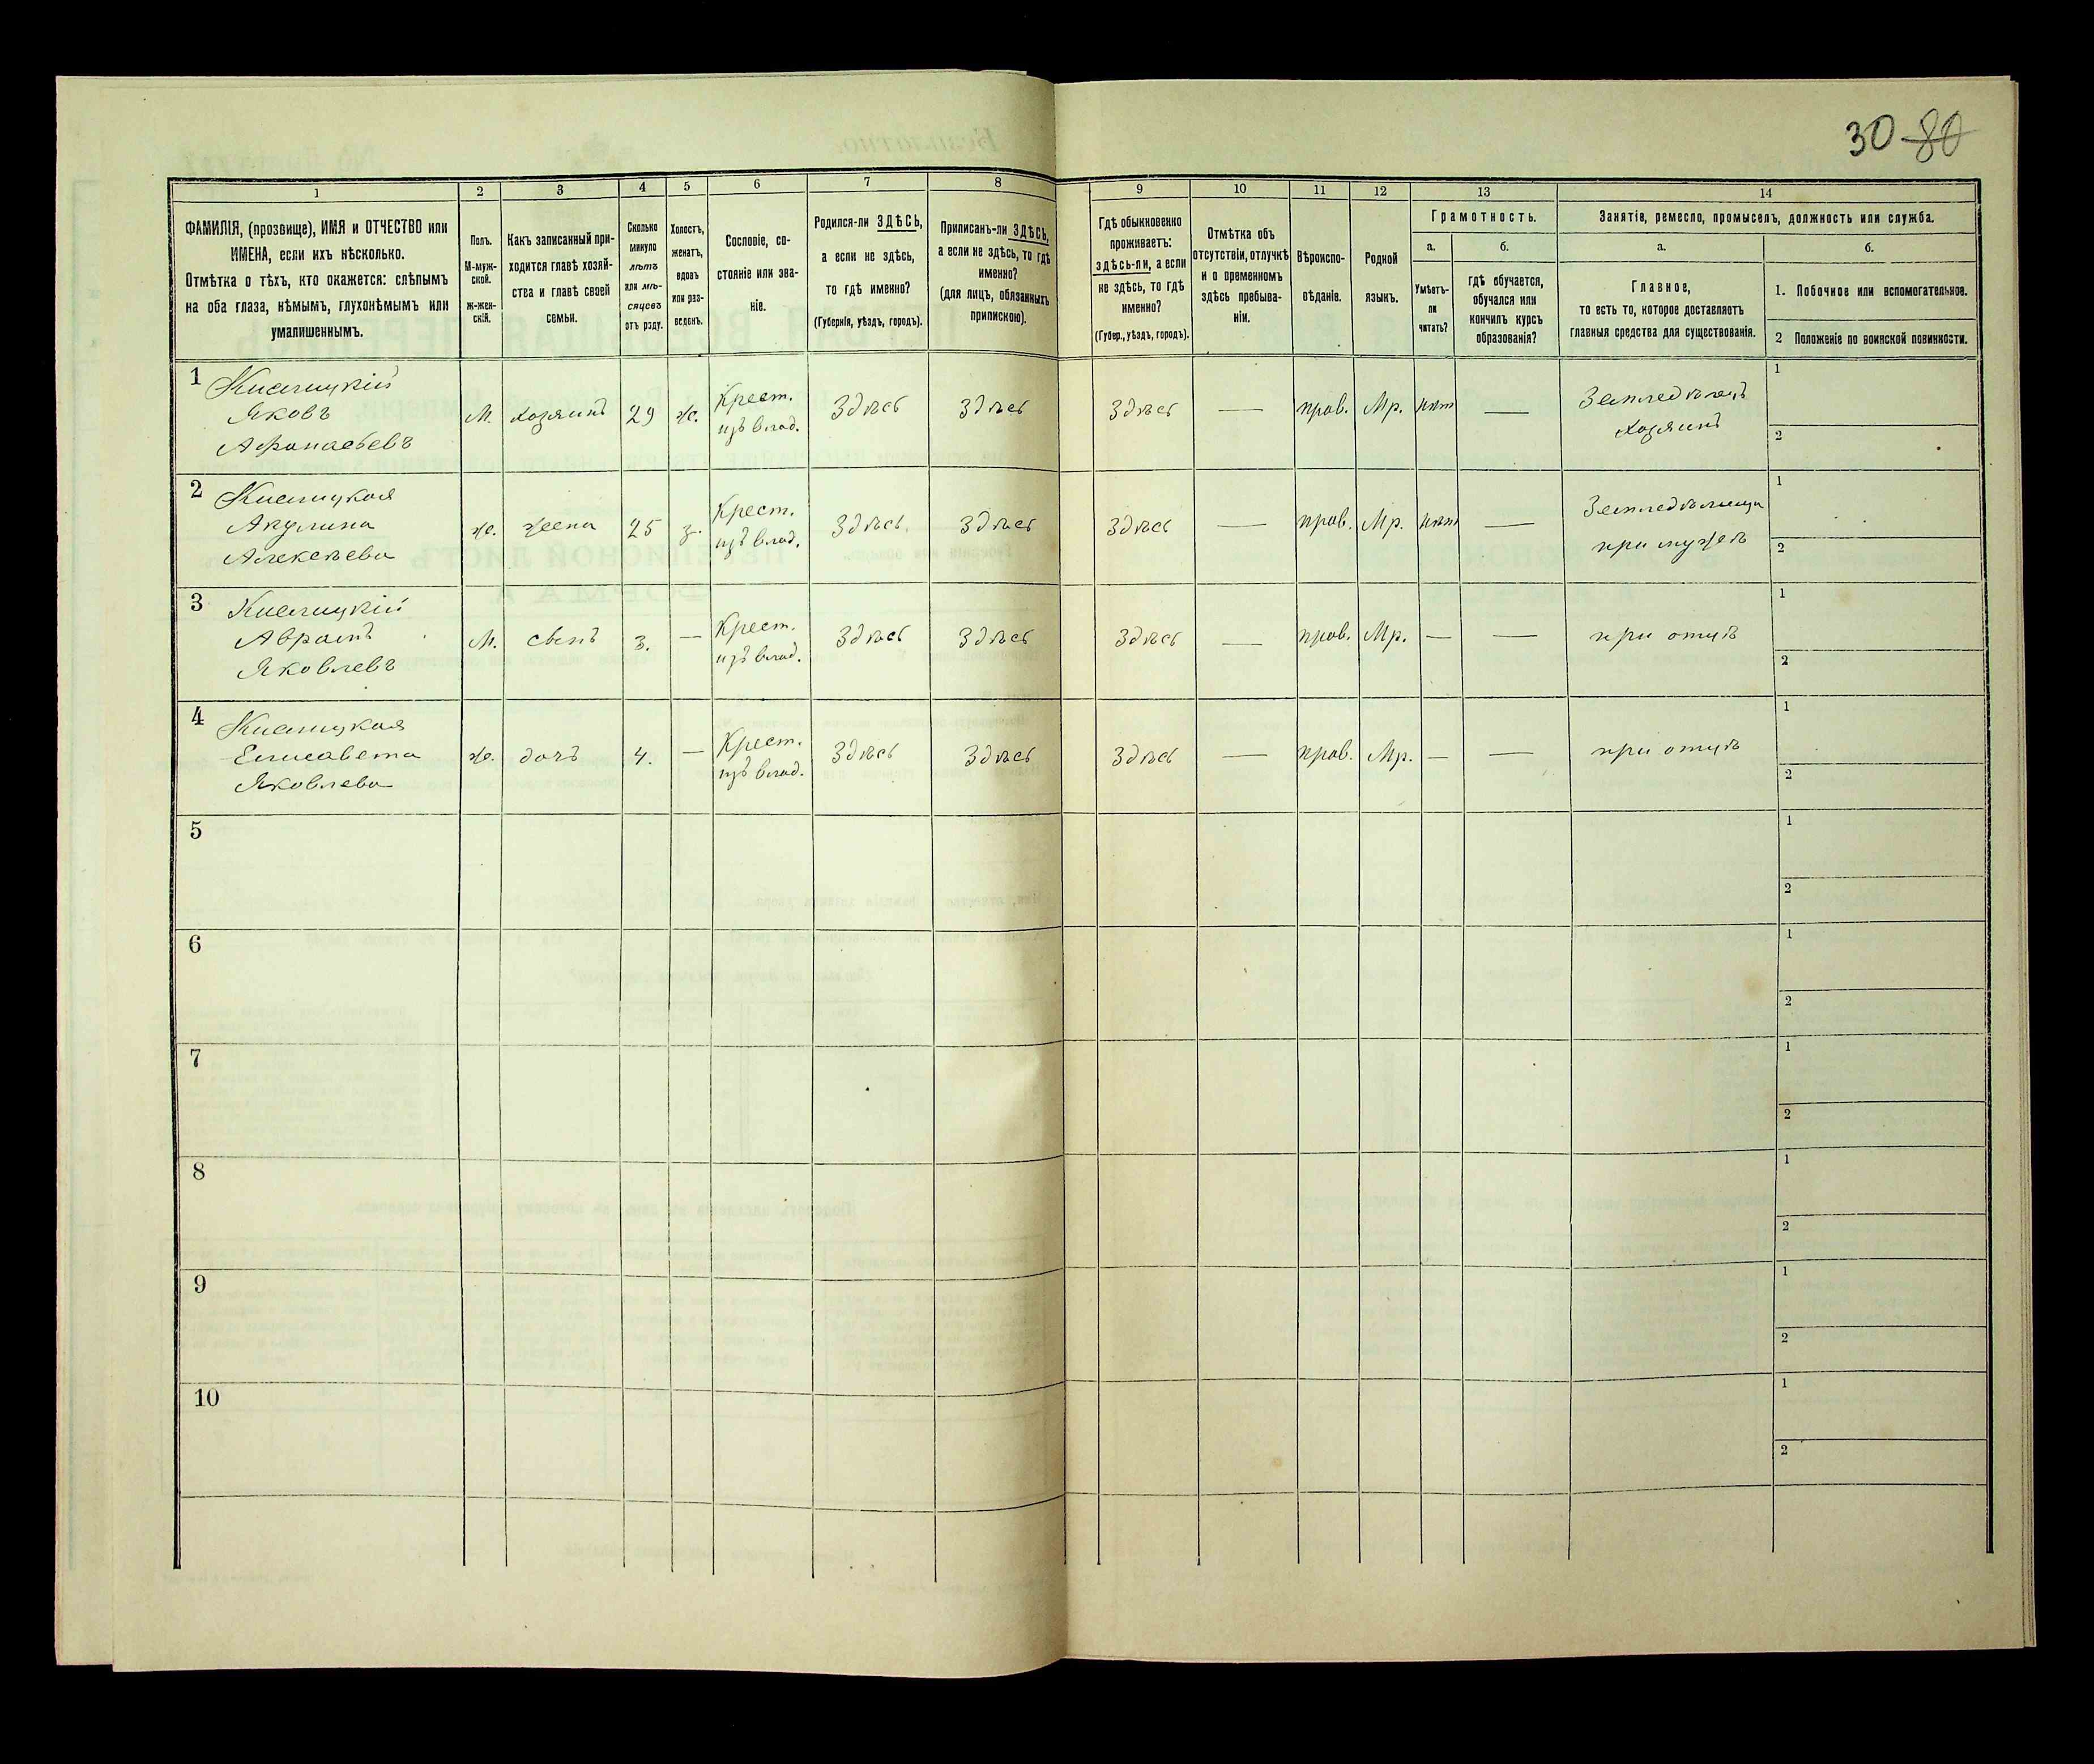 30 80
1
2
3
4
5
6
7
8
ФАМИЛІЯ, (прозвище), ИМЯ и ОТЧЕСТВО или
ИМЕНА, если ихъ нѣсколько.
Отмѣтка о тѣхъ, кто окажется: слѣпымъ
на оба глаза, нѣмымъ, глухонѣмымъ или
умалишеннымъ.
Полъ.
М-муж-
ской.
ж-жен-
скій.
Какъ записанный при-
ходится главѣ хозяй-
ства и главѣ своей
семьи.
Сколько
минуло
лѣтъ
или мѣ-
сяцевъ
отъ роду.
Холостъ,
женатъ,
вдовъ
или раз-
веденъ.
Сословіе, со-
стояніе или зва-
ніе.
Родился-ли ЗДѢСЬ,
а если не здѣсь,
то гдѣ именно?
(Губернія, уѣздъ, городъ).
Приписанъ-ли ЗДѢСЬ,
а если не здѣсь, то гдѣ
именно?
(для лицъ, обязанныхъ
припискою).
9
10
11
12
13
14
Гдѣ обыкновенно
проживаетъ:
здѣсь-ли, а если
не здѣсь, то гдѣ
именно?
(Губер., уѣздъ, городъ).
Отмѣтка объ
отсутствіи, отлучкѣ
и о временномъ
здѣсь пребыва-
ніи.
Вѣроиспо-
вѣданіе.
Родной
языкъ.
Грамотность.
а.
б.
Умѣетъ-
ли
читать?
гдѣ обучается,
обучался или
кончилъ курсъ
образованія?
Занятія, ремесло, промыселъ, должность или служба.
а.
б.
Главное,
то есть то, которое доставляетъ
главныя средства для существованія.
1. Побочное или вспомогательное.
2 Положеніе по воинской повинности.
1
Яковъ
Афонасьевъ
М. хозяинъ 29 ж. Крест.
изъ влад. Здѣсь Здѣсь Здѣсь — прав. Мр. нѣт — Земледѣлецъ
хозяинъ
1
2
2
Акулина
Алексѣева
ж. жена 25 з. Крест.
изъ влад. Здѣсь Здѣсь Здѣсь — прав. Мр. нѣт —
при мужѣ
1
2
3
Аврамъ
Яковлевъ
М. сынъ 3. — Крест.
изъ влад. Здѣсь Здѣсь Здѣсь — прав. Мр. — — при отцѣ
1
2
4
Елисавета
Яковлева
ж. дочь 4. — Крест.
изъ влад. Здѣсь Здѣсь Здѣсь — прав. Мр. — — при отцѣ
1
2
5
1
2
6
1
2
7
1
2
8
1
2
9
1
2
10
1
2